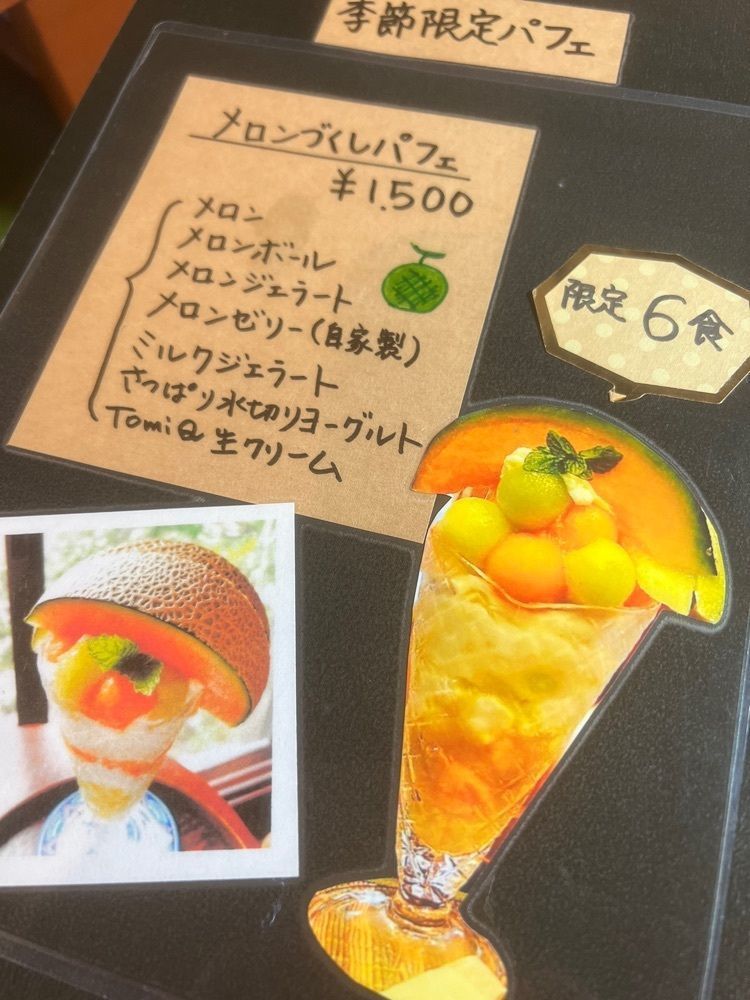 季節限定パフェ
メロンづくしパフェ
¥1,500
メロン
メロンボール
メロンジェラート
メロンゼリー(自家製)
ミルクジェラート
さっぱり水切りヨーグルト
Tomiの生クリーム
限定6食